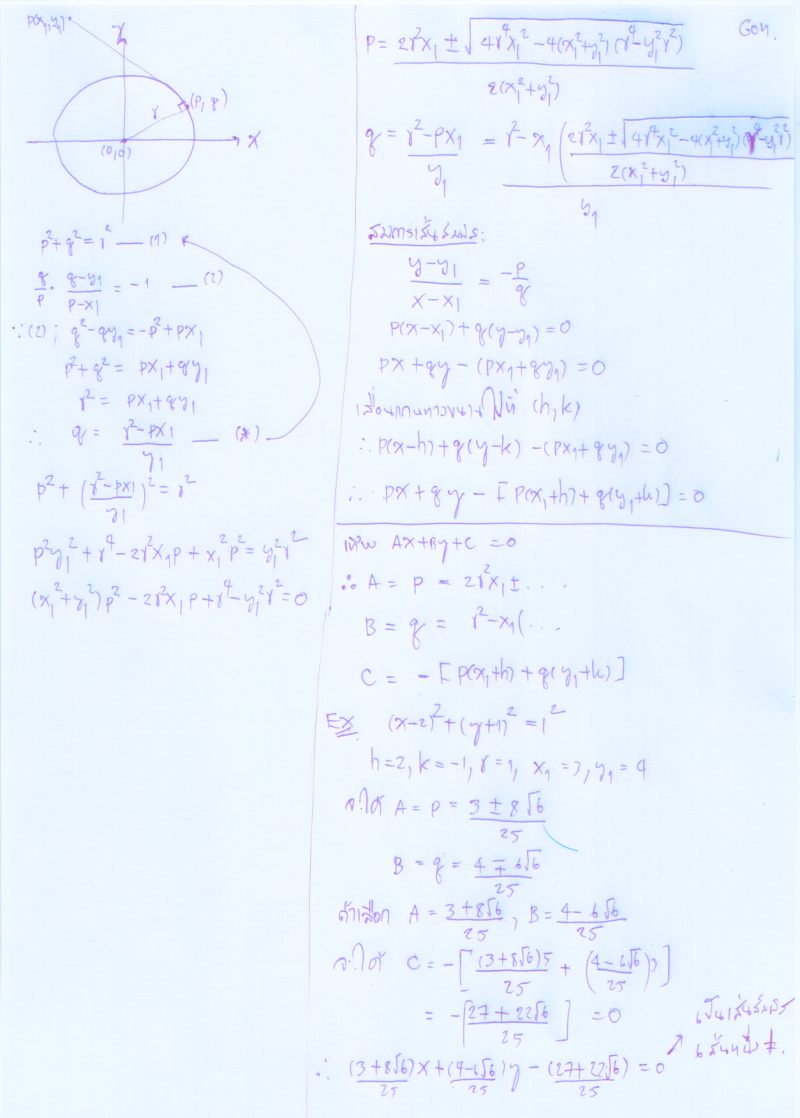 P(x₁,y₁)
Y
(P, q)
r
X
(0,0)
p²+q² = r² — (1)
q/p · (q-y₁)/(p-x₁) = -1 — (2)
∵(2) ; q²-qy₁ = -p²+px₁
p²+q² = px₁+qy₁
r² = px₁+qy₁
∴ q = (r²-px₁)/y₁ — (*)
p² + ((r²-px₁)/y₁)² = r²
p²y₁² + r⁴ - 2r²x₁p + x₁²p² = y₁²r²
(x₁²+y₁²)p² - 2r²x₁p + r⁴ - y₁²r² = 0
Gon.
P = (2r²x₁ ± √(4r⁴x₁² - 4(x₁²+y₁²)(r⁴-y₁²r²)))/(2(x₁²+y₁²))
q = (r²-px₁)/y₁ = (r² - x₁((2r²x₁ ± √(4r⁴x₁² - 4(x₁²+y₁²)(r⁴-y₁²r²)))/(2(x₁²+y₁²))))/y₁
สมการเส้นสัมผัส:
(y-y₁)/(x-x₁) = -p/q
p(x-x₁)+q(y-y₁)=0
px+qy-(px₁+qy₁)=0
เลื่อนแกนทางขนานไปที่ (h,k)
∴ p(x-h)+q(y-k)-(px₁+qy₁)=0
∴ px+qy-[p(x₁+h)+q(y₁+k)]=0
เทียบ Ax+By+C = 0
∴ A = p = 2r²x₁± ...
B = q = r²-x₁(...
C = -[p(x₁+h)+q(y₁+k)]
Ex (x-2)²+(y+1)² = 1²
h=2, k=-1, r=1, x₁=3, y₁=4
จะได้ A = p = (3 ± 8√6)/25
B = q = (4 ∓ 6√6)/25
ถ้าเลือก A = (3+8√6)/25, B = (4-6√6)/25
จะได้ C = -[((3+8√6)5)/25 + ((4-6√6)/25)3]
= -[(27+22√6)/25] = 0
∴ (3+8√6)/25 x + (4-6√6)/25 y - (27+22√6)/25 = 0
เป็นเส้นสัมผัส
เส้นหนึ่ง #.